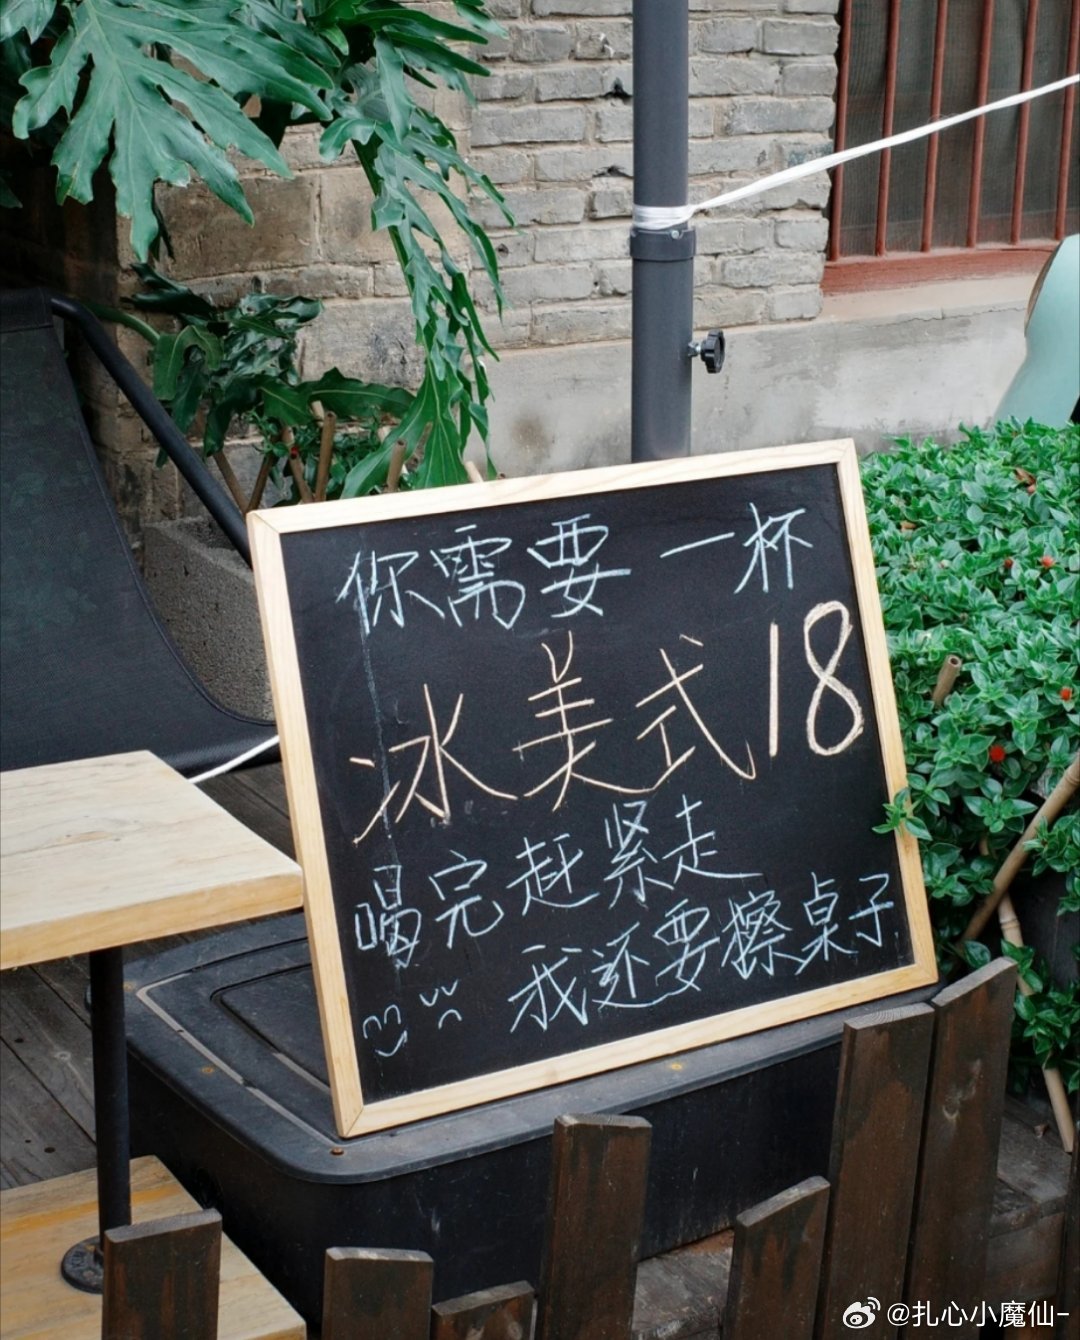 你需要一杯
冰美式18
喝完赶紧走
我还要擦桌子
@扎心小魔仙-